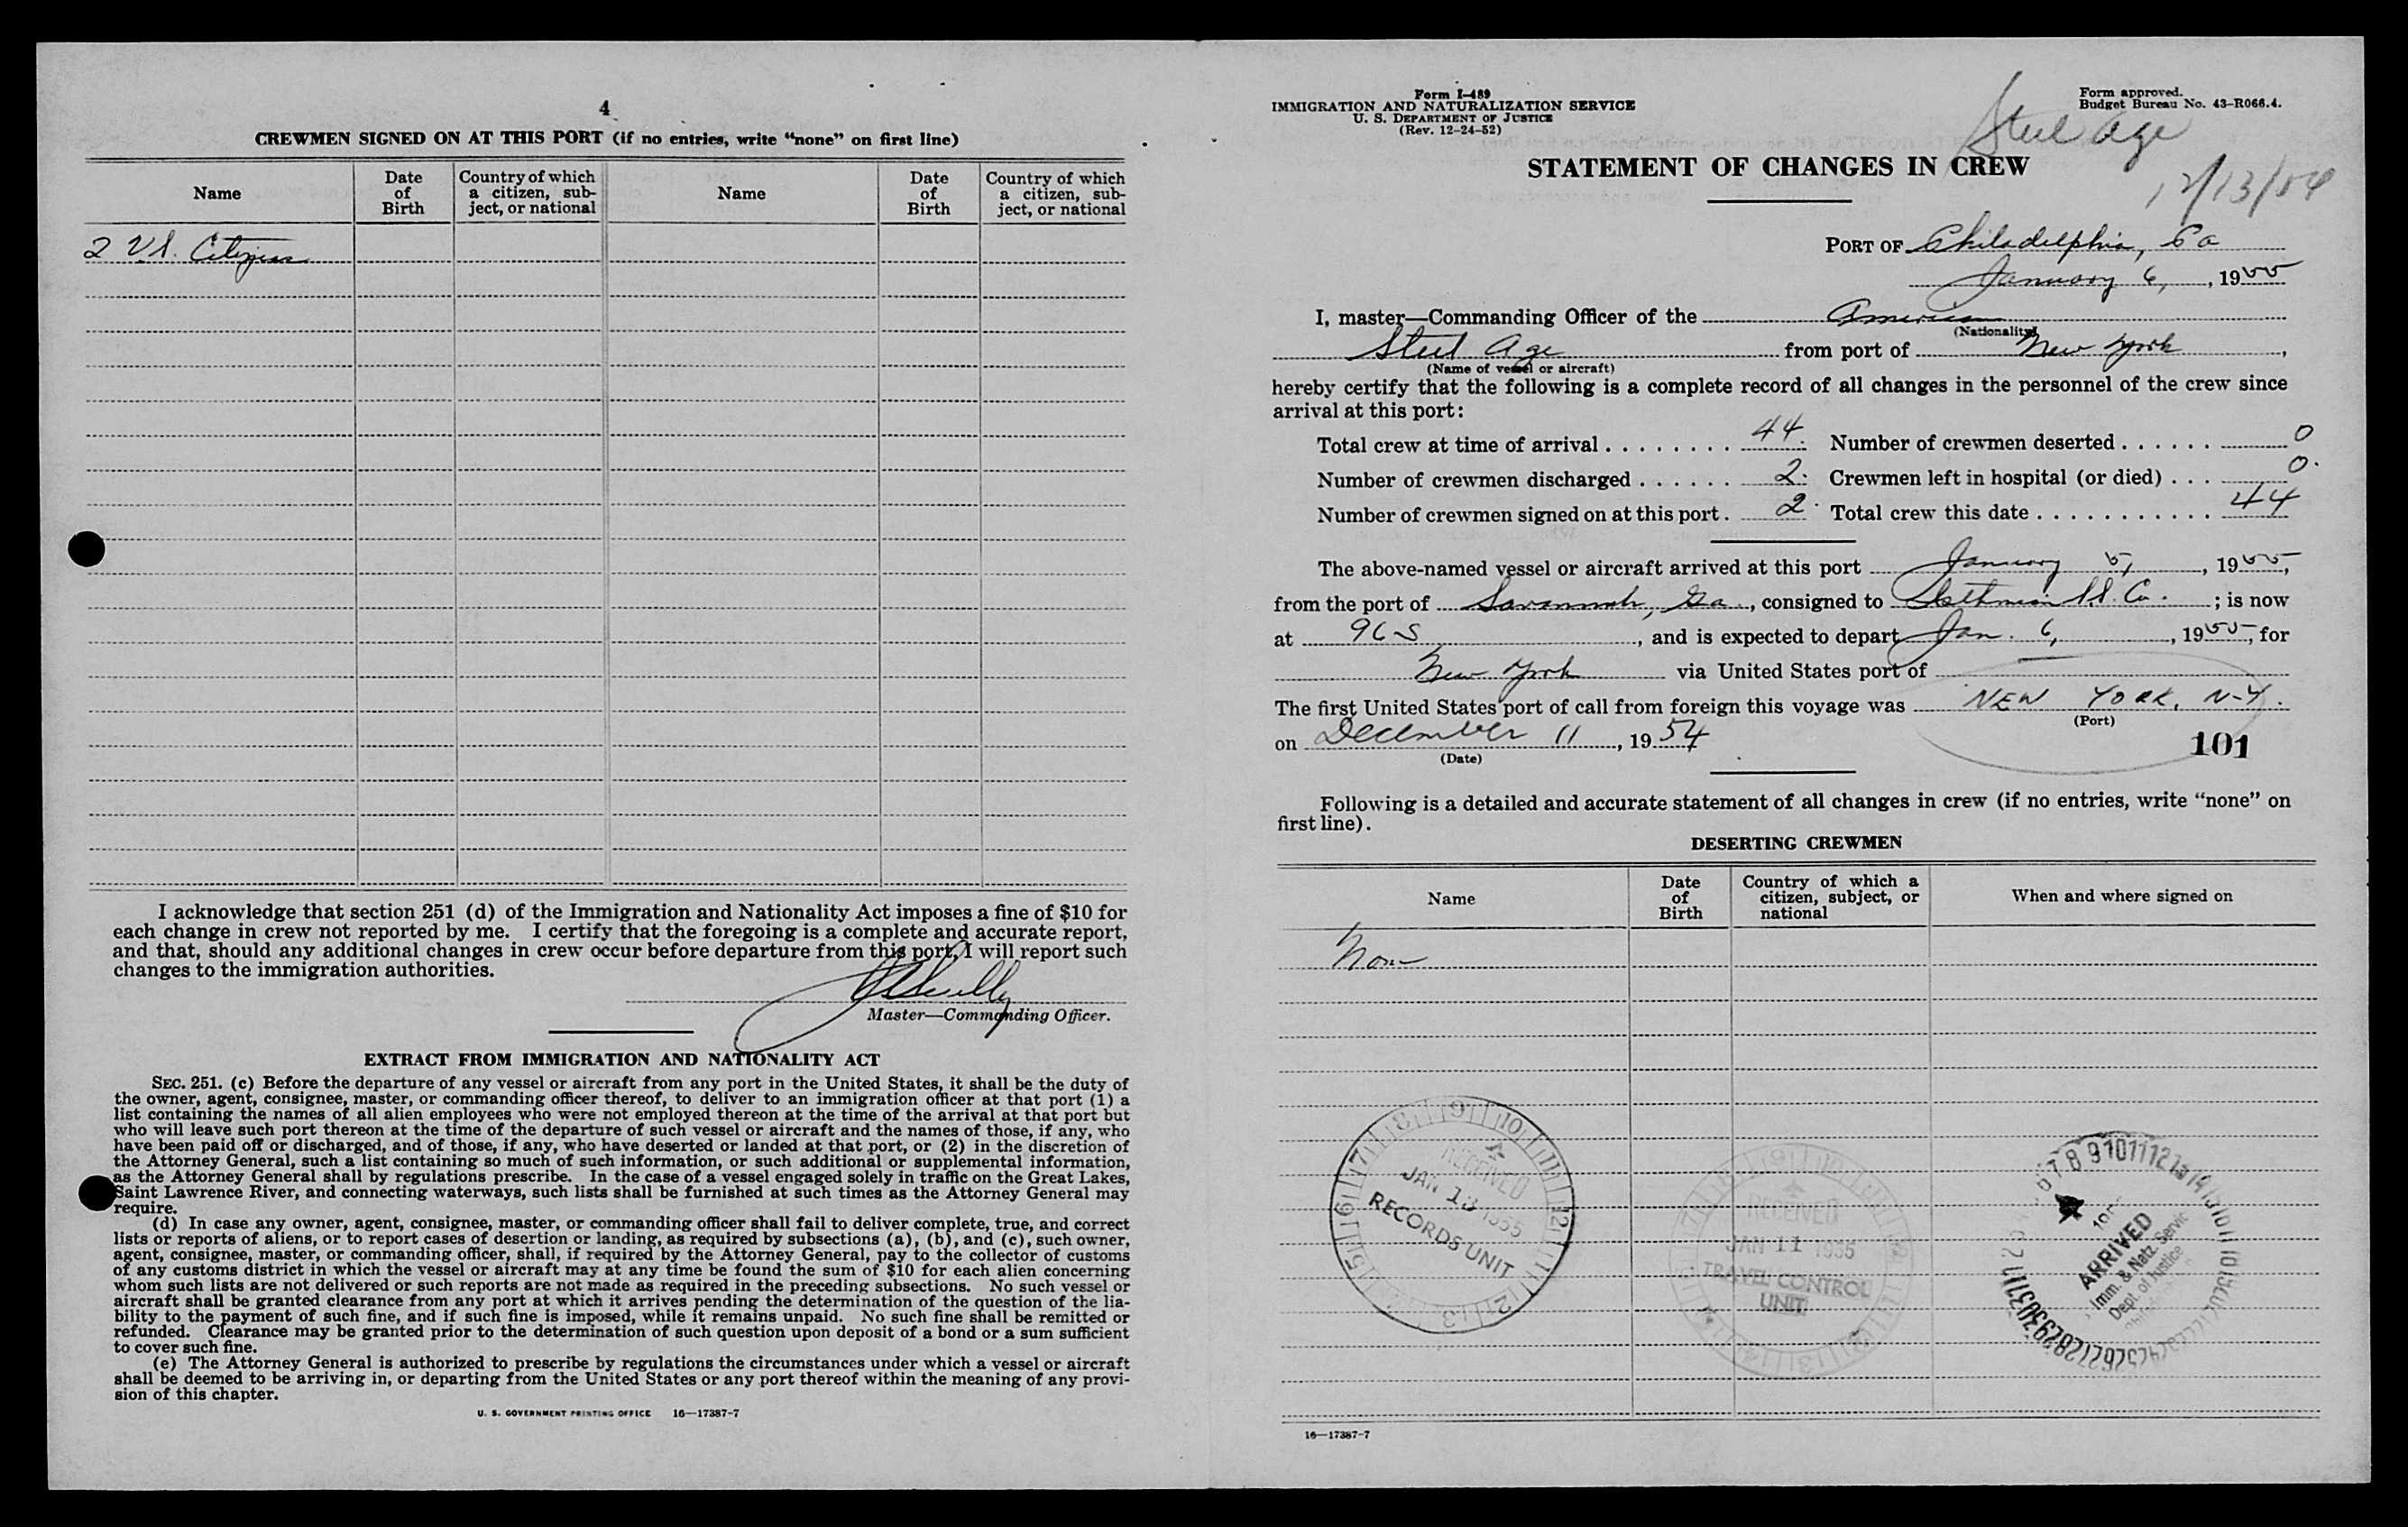 4
CREWMEN SIGNED ON AT THIS PORT (if no entries, write “none” on first line)
Name
Date of Birth
Country of which a citizen, subject, or national
Name
Date of Birth
Country of which a citizen, sub-ject, or national
2 U.S. Citizens
I acknowledge that section 251 (d) of the Immigration and Nationality Act imposes a fine of $10 for
each change in crew not reported by me. I certify that the foregoing is a complete and accurate report,
and that, should any additional changes in crew occur before departure from this port, I will report such
changes to the immigration authorities.
Master—Commanding Officer.
EXTRACT FROM IMMIGRATION AND NATIONALITY ACT
SEC. 251. (c) Before the departure of any vessel or aircraft from any port in the United States, it shall be the duty of
the owner, agent, consignee, master, or commanding officer thereof, to deliver to an immigration officer at that port (1) a
list containing the names of all alien employees who were not employed thereon at the time of the arrival at that port but
who will leave such port thereon at the time of the departure of such vessel or aircraft and the names of those, if any, who
have been paid off or discharged, and of those, if any, who have deserted or landed at that port, or (2) in the discretion of
the Attorney General, such a list containing so much of such information, or such additional or supplemental information,
as the Attorney General shall by regulations prescribe. In the case of a vessel engaged solely in traffic on the Great Lakes,
Saint Lawrence River, and connecting waterways, such lists shall be furnished at such times as the Attorney General may
require.
(d) In case any owner, agent, consignee, master, or commanding officer shall fail to deliver complete, true, and correct
lists or reports of aliens, or to report cases of desertion or landing, as required by subsections (a), (b), and (c), such owner,
agent, consignee, master, or commanding officer, shall, if required by the Attorney General, pay to the collector of customs
of any customs district in which the vessel or aircraft may at any time be found the sum of $10 for each alien concerning
whom such lists are not delivered or such reports are not made as required in the preceding subsections. No such vessel or
aircraft shall be granted clearance from any port at which it arrives pending the determination of the question of the lia-
bility to the payment of such fine, and if such fine is imposed, while it remains unpaid. No such fine shall be remitted or
refunded. Clearance may be granted prior to the determination of such question upon deposit of a bond or a sum sufficient
to cover such fine.
(e) The Attorney General is authorized to prescribe by regulations the circumstances under which a vessel or aircraft
shall be deemed to be arriving in, or departing from the United States or any port thereof within the meaning of any provi-
sion of this chapter.
U. S. GOVERNMENT PRINTING OFFICE 16—17387-7
Form I-489
IMMIGRATION AND NATURALIZATION SERVICE
U. S. DEPARTMENT OF JUSTICE
(Rev. 12-24-52)
Form approved.
Budget Bureau No. 43-R066.4.
Steel Age
12/13/54
STATEMENT OF CHANGES IN CREW
PORT OF Philadelphia, Pa
January 6, , 1955
I, master—Commanding Officer of the American
(Nationality)
Steel Age from port of New York ,
(Name of vessel or aircraft)
hereby certify that the following is a complete record of all changes in the personnel of the crew since
arrival at this port:
Total crew at time of arrival 44. Number of crewmen deserted 0
Number of crewmen discharged 2. Crewmen left in hospital (or died) 0.
Number of crewmen signed on at this port. 2. Total crew this date 44
The above-named vessel or aircraft arrived at this port January 5, , 1955,
from the port of Savannah, Ga. , consigned to Isthmian S.S. Co. ; is now
at 96 S , and is expected to depart Jan. 6, , 1955, for
New York via United States port of
The first United States port of call from foreign this voyage was NEW YORK, N-Y.
(Port)
on December 11 , 1954
(Date)
101
Following is a detailed and accurate statement of all changes in crew (if no entries, write “none” on
first line).
DESERTING CREWMEN
Name
Date of Birth
Country of which a citizen, subject, or national
When and where signed on
None
RECEIVED
JAN 13 1955
RECORDS UNIT
RECEIVED
JAN 11 1955
TRAVEL CONTROL
UNIT
ARRIVED
Imm. & Natz. Servic
Dept. of Justice
16—17387-7